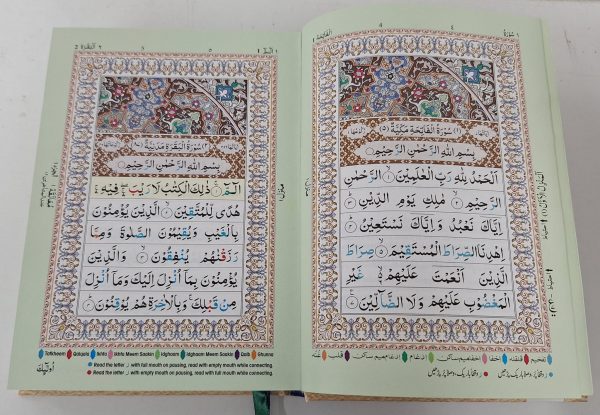 سُوْرَةُ ١
٤
الْفَاتِحَة ١
(١) سُوْرَةُ الْفَاتِحَةِ مَكِّيَّةٌ (٥)
بِسْمِ اللّٰهِ الرَّحْمٰنِ الرَّحِيْمِ
اَلْحَمْدُ لِلّٰهِ رَبِّ الْعٰلَمِيْنَ ۙ﴿١﴾ الرَّحْمٰنِ
الرَّحِيْمِ ۙ﴿٢﴾ مٰلِكِ يَوْمِ الدِّيْنِ ؕ﴿٣﴾
اِيَّاكَ نَعْبُدُ وَاِيَّاكَ نَسْتَعِيْنُ ؕ﴿٤﴾
اِهْدِنَا الصِّرَاطَ الْمُسْتَقِيْمَ ۙ﴿٥﴾ صِرَاطَ
الَّذِيْنَ اَنْعَمْتَ عَلَيْهِمْ ۙ۬ غَيْرِ
الْمَغْضُوْبِ عَلَيْهِمْ وَلَا الضَّآلِّيْنَ
تفخيم قلقله اخفا اخفامیم ساكن ادغام ادغام میم ساكن قلب غنه
الٓمّٓ ١
٥
البقرة ٢
(٢) سُوْرَةُ الْبَقَرَةِ مَدَنِيَّةٌ (٨٧)
بِسْمِ اللّٰهِ الرَّحْمٰنِ الرَّحِيْمِ
الٓمّٓ ۚ﴿١﴾ ذٰلِكَ الْكِتٰبُ لَا رَيْبَ ۛۖ فِيْهِ ۛۚ
هُدًى لِّلْمُتَّقِيْنَ ۙ﴿٢﴾ الَّذِيْنَ يُؤْمِنُوْنَ
بِالْغَيْبِ وَيُقِيْمُوْنَ الصَّلٰوةَ وَمِمَّا
رَزَقْنٰهُمْ يُنْفِقُوْنَ ۙ﴿٣﴾ وَالَّذِيْنَ
يُؤْمِنُوْنَ بِمَاۤ اُنْزِلَ اِلَيْكَ وَمَاۤ اُنْزِلَ
مِنْ قَبْلِكَ ۚ وَبِالْاٰخِرَةِ هُمْ يُوْقِنُوْنَ ؕ﴿٤﴾
Tafkheem Qalqala Ikhfa Ikhfa Meem Saakin Idghaam Idghaam Meem Saakin Qalb Ghunna
Read the letter ر with full mouth on pausing, read with empty mouth while connecting.
Read the letter ر with empty mouth on pausing, read with full mouth while connecting.
اُولٰٓئِكَ